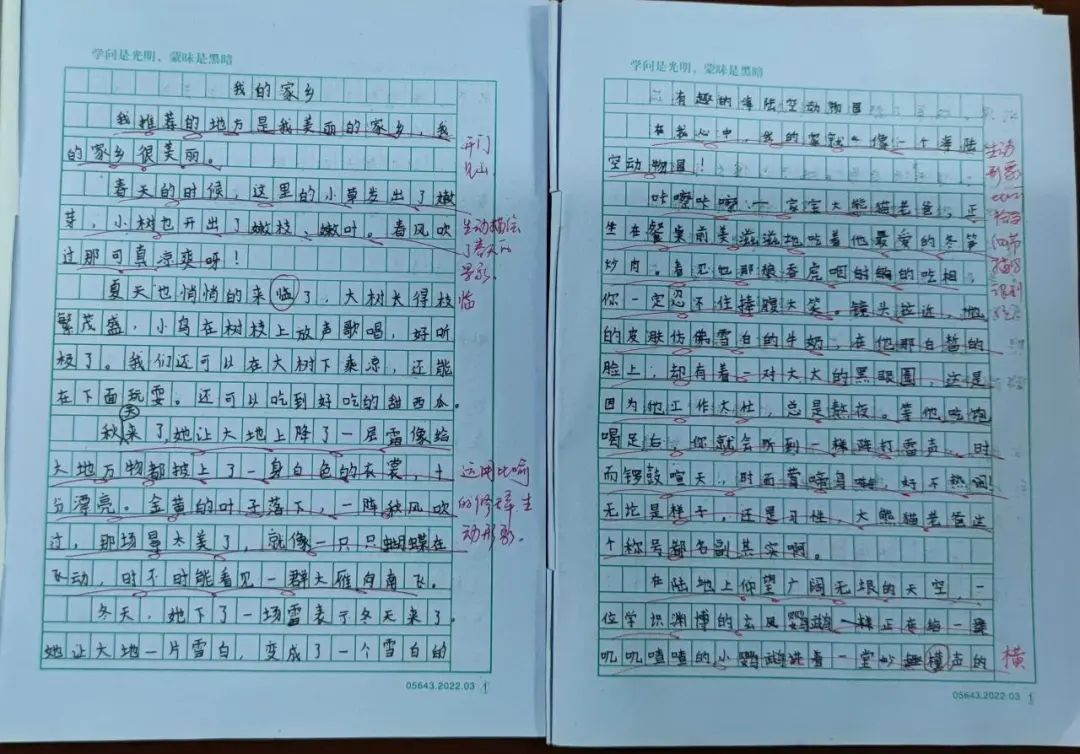 学问是光明，蒙昧是黑暗
我的家乡
我推荐的地方是我美丽的家乡，我
的家乡很美丽。
开门
见山
春天的时候，这里的小草发出了嫩
芽，小树也开出了嫩枝、嫩叶。春风吹
过那可真凉爽呀！
生动描绘
了春天的
景象
夏天也悄悄的来临了，大树长得枝
临
繁茂盛，小鸟在树枝上放声歌唱，好听
极了。我们还可以在大树下乘凉，还能
在下面玩耍。还可以吃到好吃的甜西瓜。
天
秋来了，她让大地上降了一层霜像给
大地万物都披上了一身白色的衣裳，十
分漂亮。金黄的叶子落下，一阵秋风吹
过，那场景太美了，就像一只只蝴蝶在
飞动，时不时能看见一群大雁向南飞。
运用比喻
的修辞生
动形象
冬天，她下了一场雪表示冬天来了。
她让大地一片雪白，变成了一个雪白的
05643.2022.03 1
学问是光明，蒙昧是黑暗
有趣的海陆空动物园
在我心中，我的家就像一个海陆
空动物园！
生动
形象
咔嚓咔嚓——宝宝大熊猫老爸，正
坐在餐桌前美滋滋地吃着他最爱的冬笋
炒肉。看见他那狼吞虎咽的吃相，
你一定忍不住捧腹大笑。镜头拉近，他
的皮肤仿佛雪白的牛奶，在他那白皙的
脸上，却有着一对大大的黑眼圈，这是
因为他工作太忙，总是熬夜。等他吃饱
喝足后，你就会听到一阵阵打雷声，时
而锣鼓喧天，时而莺啼鸟啭，好不热闹！
无论是样子，还是习性，大熊猫老爸这
个称号都名副其实啊。
细节
描写
在陆地上仰望广阔无垠的天空，一
位学识渊博的玄凤鹦鹉正在给一群
叽叽喳喳的小鹦鹉讲着一堂妙趣横声的
横
05643.2022.03 1